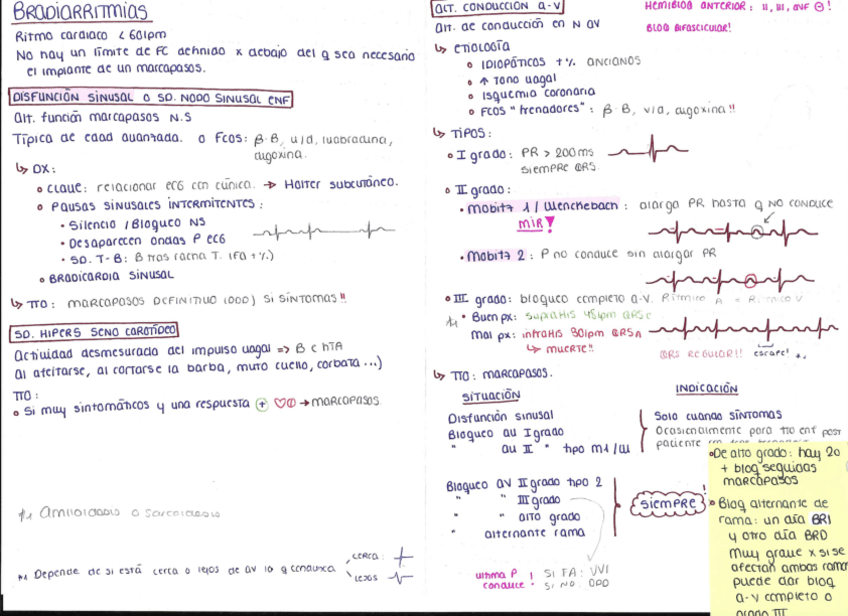 BRADIARRITMIAS
Ritmo cardiaco < 60lpm
No hay un límite de FC definido x debajo del q sea necesario
el implante de un marcapasos.
DISFUNCIÓN SINUSAL O SD. NODO SINUSAL ENF
Alt. función marcapasos N.S
Típica de edad avanzada. o Fcos: β-B, v/d, ivabradina,
digoxina.
↳ DX:
• Clave: relacionar ECG con clínica. → Holter subcutáneo.
• Pausas sinusales intermitentes:
• Silencio / Bloqueo NS
• Desaparecen ondas P ECG
• SD. T-B: B tras racha T. (FA +%)
• BRADICARDIA SINUSAL
↳ TTO: MARCAPASOS DEFINITIVO (DDD) SI SÍNTOMAS!!
SD. HIPERS SENO CAROTÍDEO
Actividad desmesurada del impulso vagal => B c hTA
Al afeitarse, al cortarse la barba, mvto cuello, corbata...)
TTO:
• Si muy sintomáticos y una respuesta + → marcapasos
*1 Amiloidosis o sarcoidosis
** Depende de si está cerca o lejos de AV lo q conduzca
CERCA:
LEJOS
ALT. CONDUCCIÓN A-V
Alt. de conducción en N AV
↳ ETIOLOGÍA
• IDIOPÁTICOS +% ANCIANOS
• ↑ Tono vagal
• Isquemia coronaria
• FCOS "frenadores": β-B, v/d, digoxina!!
↳ TIPOS:
• I grado: PR > 200ms
siempre QRS.
• II grado:
• Mobitz 1 / Wenckebach: alarga PR hasta q NO CONDUCE
MIR!
• Mobitz 2: P no conduce sin alargar PR
• III grado: bloqueo completo A-V. Ritmo A ≠ Ritmo V
*1 • Buen px: supraHis 45lpm QRSe
Mal px: intraHis 30lpm QRSA
↳ MUERTE!!
QRS REGULAR!! escape! *.
↳ TTO: MARCAPASOS.
SITUACIÓN
INDICACIÓN
Disfunción sinusal
Bloqueo AV I grado
" AV II " tipo M1/W
Solo cuando síntomas
Ocasionalmente para tto enf post
paciente
Bloqueo AV II grado tipo 2
" " III grado
" " alto grado
" alternante rama
SIEMPRE !
ultima P conduce!
SI FA: VVI
SI NO: DDD
HEMIBLOQ ANTERIOR: II, III, aVF ⊖!
BLOQ BIFASCICULAR!
•De alto grado: hay 2 o
+ bloq seguidas
marcapasos
• Bloq alternante de
rama: un día BRI
y otro día BRD
Muy grave x si se
afectan ambas ramas
puede dar bloq
a-v completo o
grado III